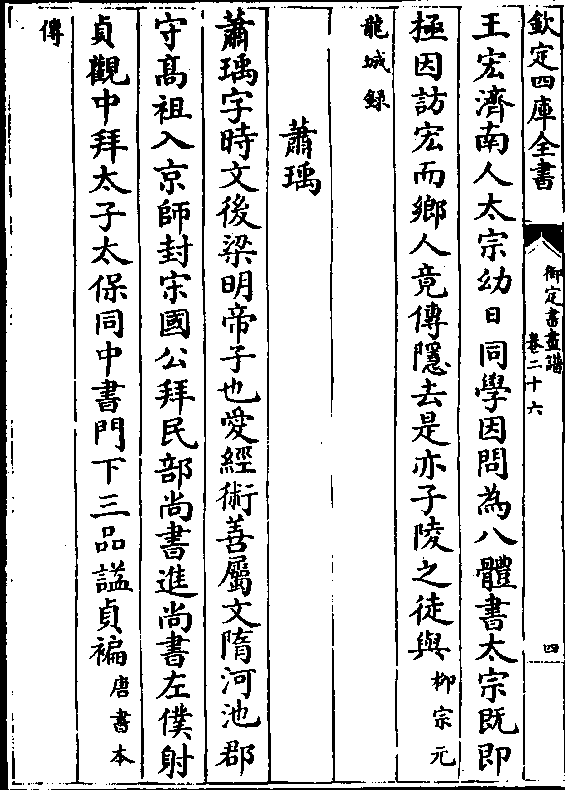 欽定四庫全書
御定書畫譜
卷二十六
四
王宏濟南人太宗幼日同學因問為八體書太宗既即
極因訪宏而鄉人竟傳隱去是亦子陵之徒與柳宗元
龍城録
蕭瑀
蕭瑀字時文後梁明帝子也愛經術善屬文隋河池郡
守髙祖入京師封宋國公拜民部尚書進尚書左僕射
貞觀中拜太子太保同中書門下三品諡貞褊唐書本
傳